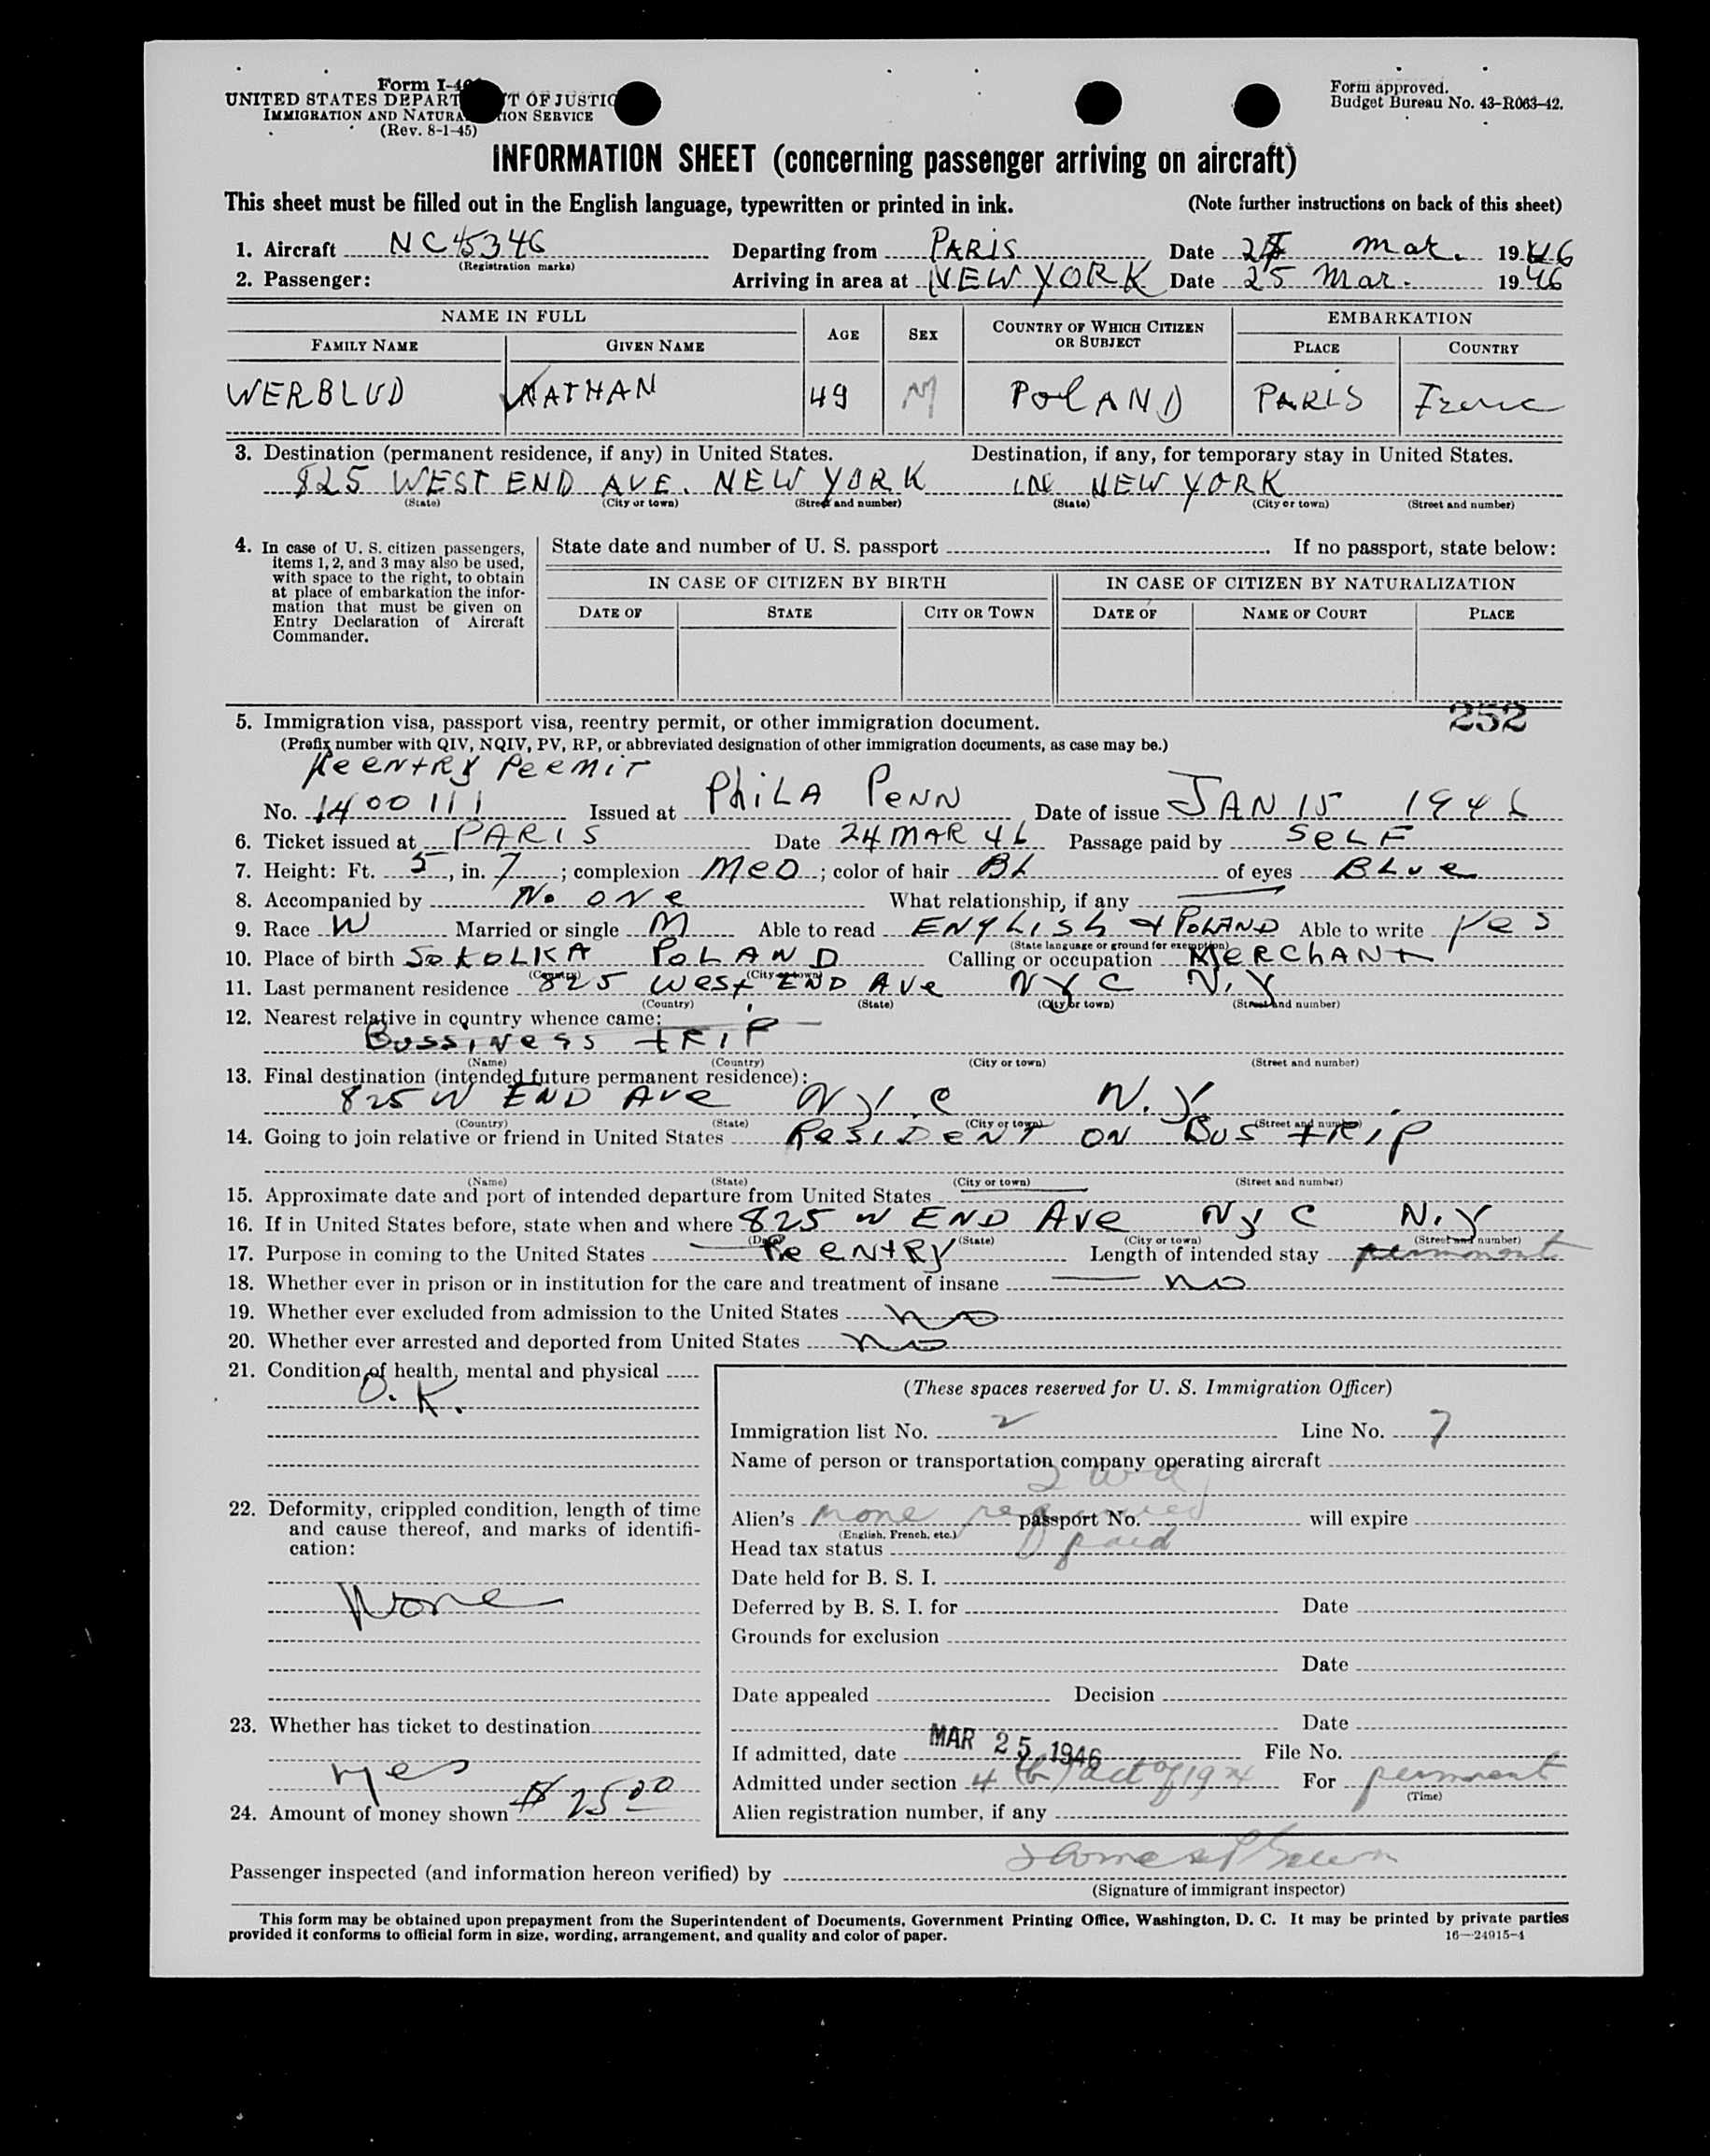 Form I-4
UNITED STATES DEPART T OF JUSTIC
IMMIGRATION AND NATURA ION SERVICE
(Rev. 8-1-45)
Form approved.
Budget Bureau No. 43-R063-42.
INFORMATION SHEET (concerning passenger arriving on aircraft)
This sheet must be filled out in the English language, typewritten or printed in ink. (Note further instructions on back of this sheet)
1. Aircraft NC45346 Departing from PARIS Date Mar. 1946
(Registration marks)
2. Passenger: Arriving in area at NEW YORK Date 25 Mar. 1946
NAME IN FULL AGE SEX COUNTRY OF WHICH CITIZEN OR SUBJECT EMBARKATION
FAMILY NAME GIVEN NAME PLACE COUNTRY
WERBLUD NATHAN 49 M POLAND PARIS
3. Destination (permanent residence, if any) in United States. Destination, if any, for temporary stay in United States.
825 WEST END AVE. NEW YORK IN NEW YORK
(State) (City or town) (Street and number) (State) (City or town) (Street and number)
4. In case of U. S. citizen passengers, items 1, 2, and 3 may also be used, with space to the right, to obtain at place of embarkation the information that must be given on Entry Declaration of Aircraft Commander.
State date and number of U. S. passport . If no passport, state below:
IN CASE OF CITIZEN BY BIRTH IN CASE OF CITIZEN BY NATURALIZATION
DATE OF STATE CITY OR TOWN DATE OF NAME OF COURT PLACE
252
5. Immigration visa, passport visa, reentry permit, or other immigration document.
(Prefix number with QIV, NQIV, PV, RP, or abbreviated designation of other immigration documents, as case may be.)
ReentRy PeRmiT
No. 1400111 Issued at PhiLA PeNN Date of issue JAN 15 1946
6. Ticket issued at PARIS Date 24 MAR 46 Passage paid by SeLF
7. Height: Ft. 5, in. 7; complexion MeD; color of hair BL of eyes BLue
8. Accompanied by No oNe What relationship, if any
9. Race W Married or single M Able to read ENgLish & PoLAND Able to write yes
(State language or ground for exemption)
10. Place of birth SokoLKA PoLAND Calling or occupation MeRChANt
(Country) (City or town)
11. Last permanent residence 825 West END Ave NyC N.y
(Country) (State) (City or town) (Street and number)
12. Nearest relative in country whence came:
BussiNess tRiP
(Name) (Country) (City or town) (Street and number)
13. Final destination (intended future permanent residence):
825 W END Ave Ny.C N.y
(Country) (State) (City or town) (Street and number)
14. Going to join relative or friend in United States ResiDeNT ON Bus tRip
(Name) (State) (City or town) (Street and number)
15. Approximate date and port of intended departure from United States
16. If in United States before, state when and where 825 W END Ave NyC N.y
(Date) (State) (City or town) (Street and number)
17. Purpose in coming to the United States Re eNtRy Length of intended stay permanent
18. Whether ever in prison or in institution for the care and treatment of insane no
19. Whether ever excluded from admission to the United States no
20. Whether ever arrested and deported from United States no
21. Condition of health, mental and physical
O.K.
22. Deformity, crippled condition, length of time and cause thereof, and marks of identification:
None
23. Whether has ticket to destination
yes
24. Amount of money shown $ 25 00
(These spaces reserved for U. S. Immigration Officer)
Immigration list No. 2 Line No. 7
Name of person or transportation company operating aircraft
Alien's none required passport No. will expire
(English, French, etc.)
Head tax status paid
Date held for B. S. I.
Deferred by B. S. I. for Date
Grounds for exclusion
Date
Date appealed Decision
Date
If admitted, date MAR 25 1946 File No.
Admitted under section 4 (b) act of 1924 For permanent
(Time)
Alien registration number, if any
Passenger inspected (and information hereon verified) by
(Signature of immigrant inspector)
This form may be obtained upon prepayment from the Superintendent of Documents, Government Printing Office, Washington, D. C. It may be printed by private parties
provided it conforms to official form in size, wording, arrangement, and quality and color of paper. 16—24915-4